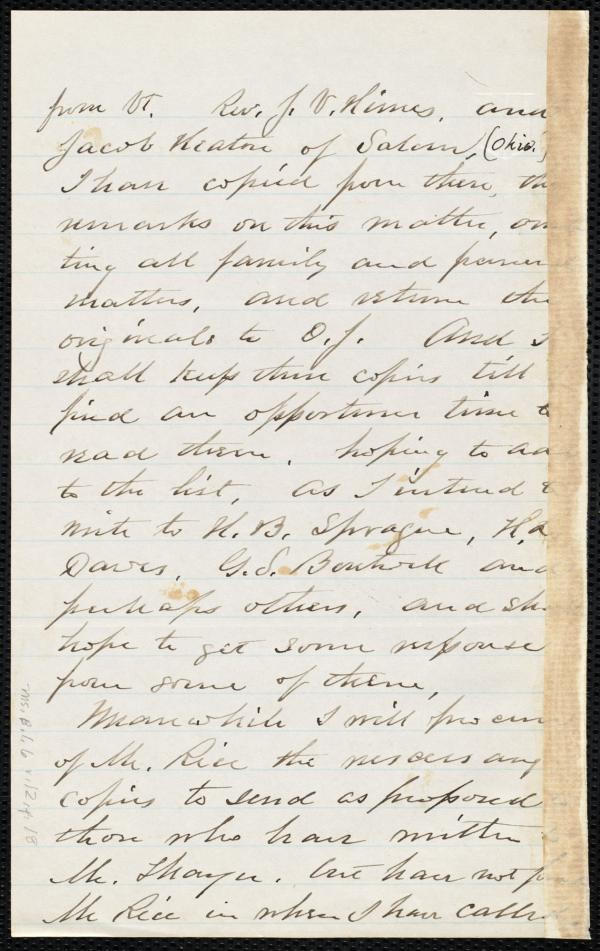 from Vt. Rev. J. V. Himes, and
Jacob Heaton of Salem, (Ohio.)
I have copied from these, the
remarks on this matter, omit
ting all family and personal
matters, and return the
originals to O. J. And I
shall keep these copies till I
find an opportune time to
read them, hoping to add
to the list, as I intend to
write to H. B. Sprague, H. L.
Dawes, G. S. Boutwell and
perhaps others, and shall
hope to get some response
from some of them,
Meanwhile I will procure
of Mr. Rice the necessary
copies to send as proposed
those who have written
Mr. Thayer. but have not found
Mr Rice in when I have called
Ms. B.1.6 v.12, p. 18